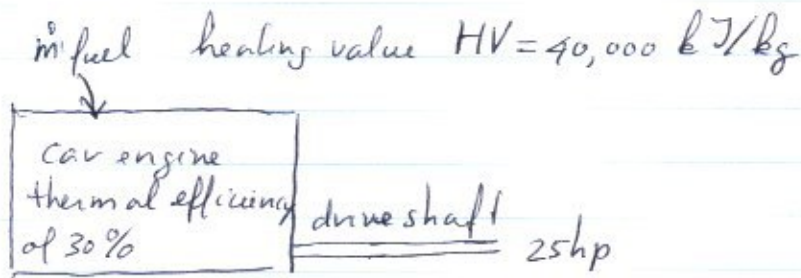 ṁ fuel heating value HV = 40,000 kJ/kg
car engine
thermal efficiency
of 30%
drive shaft
25hp